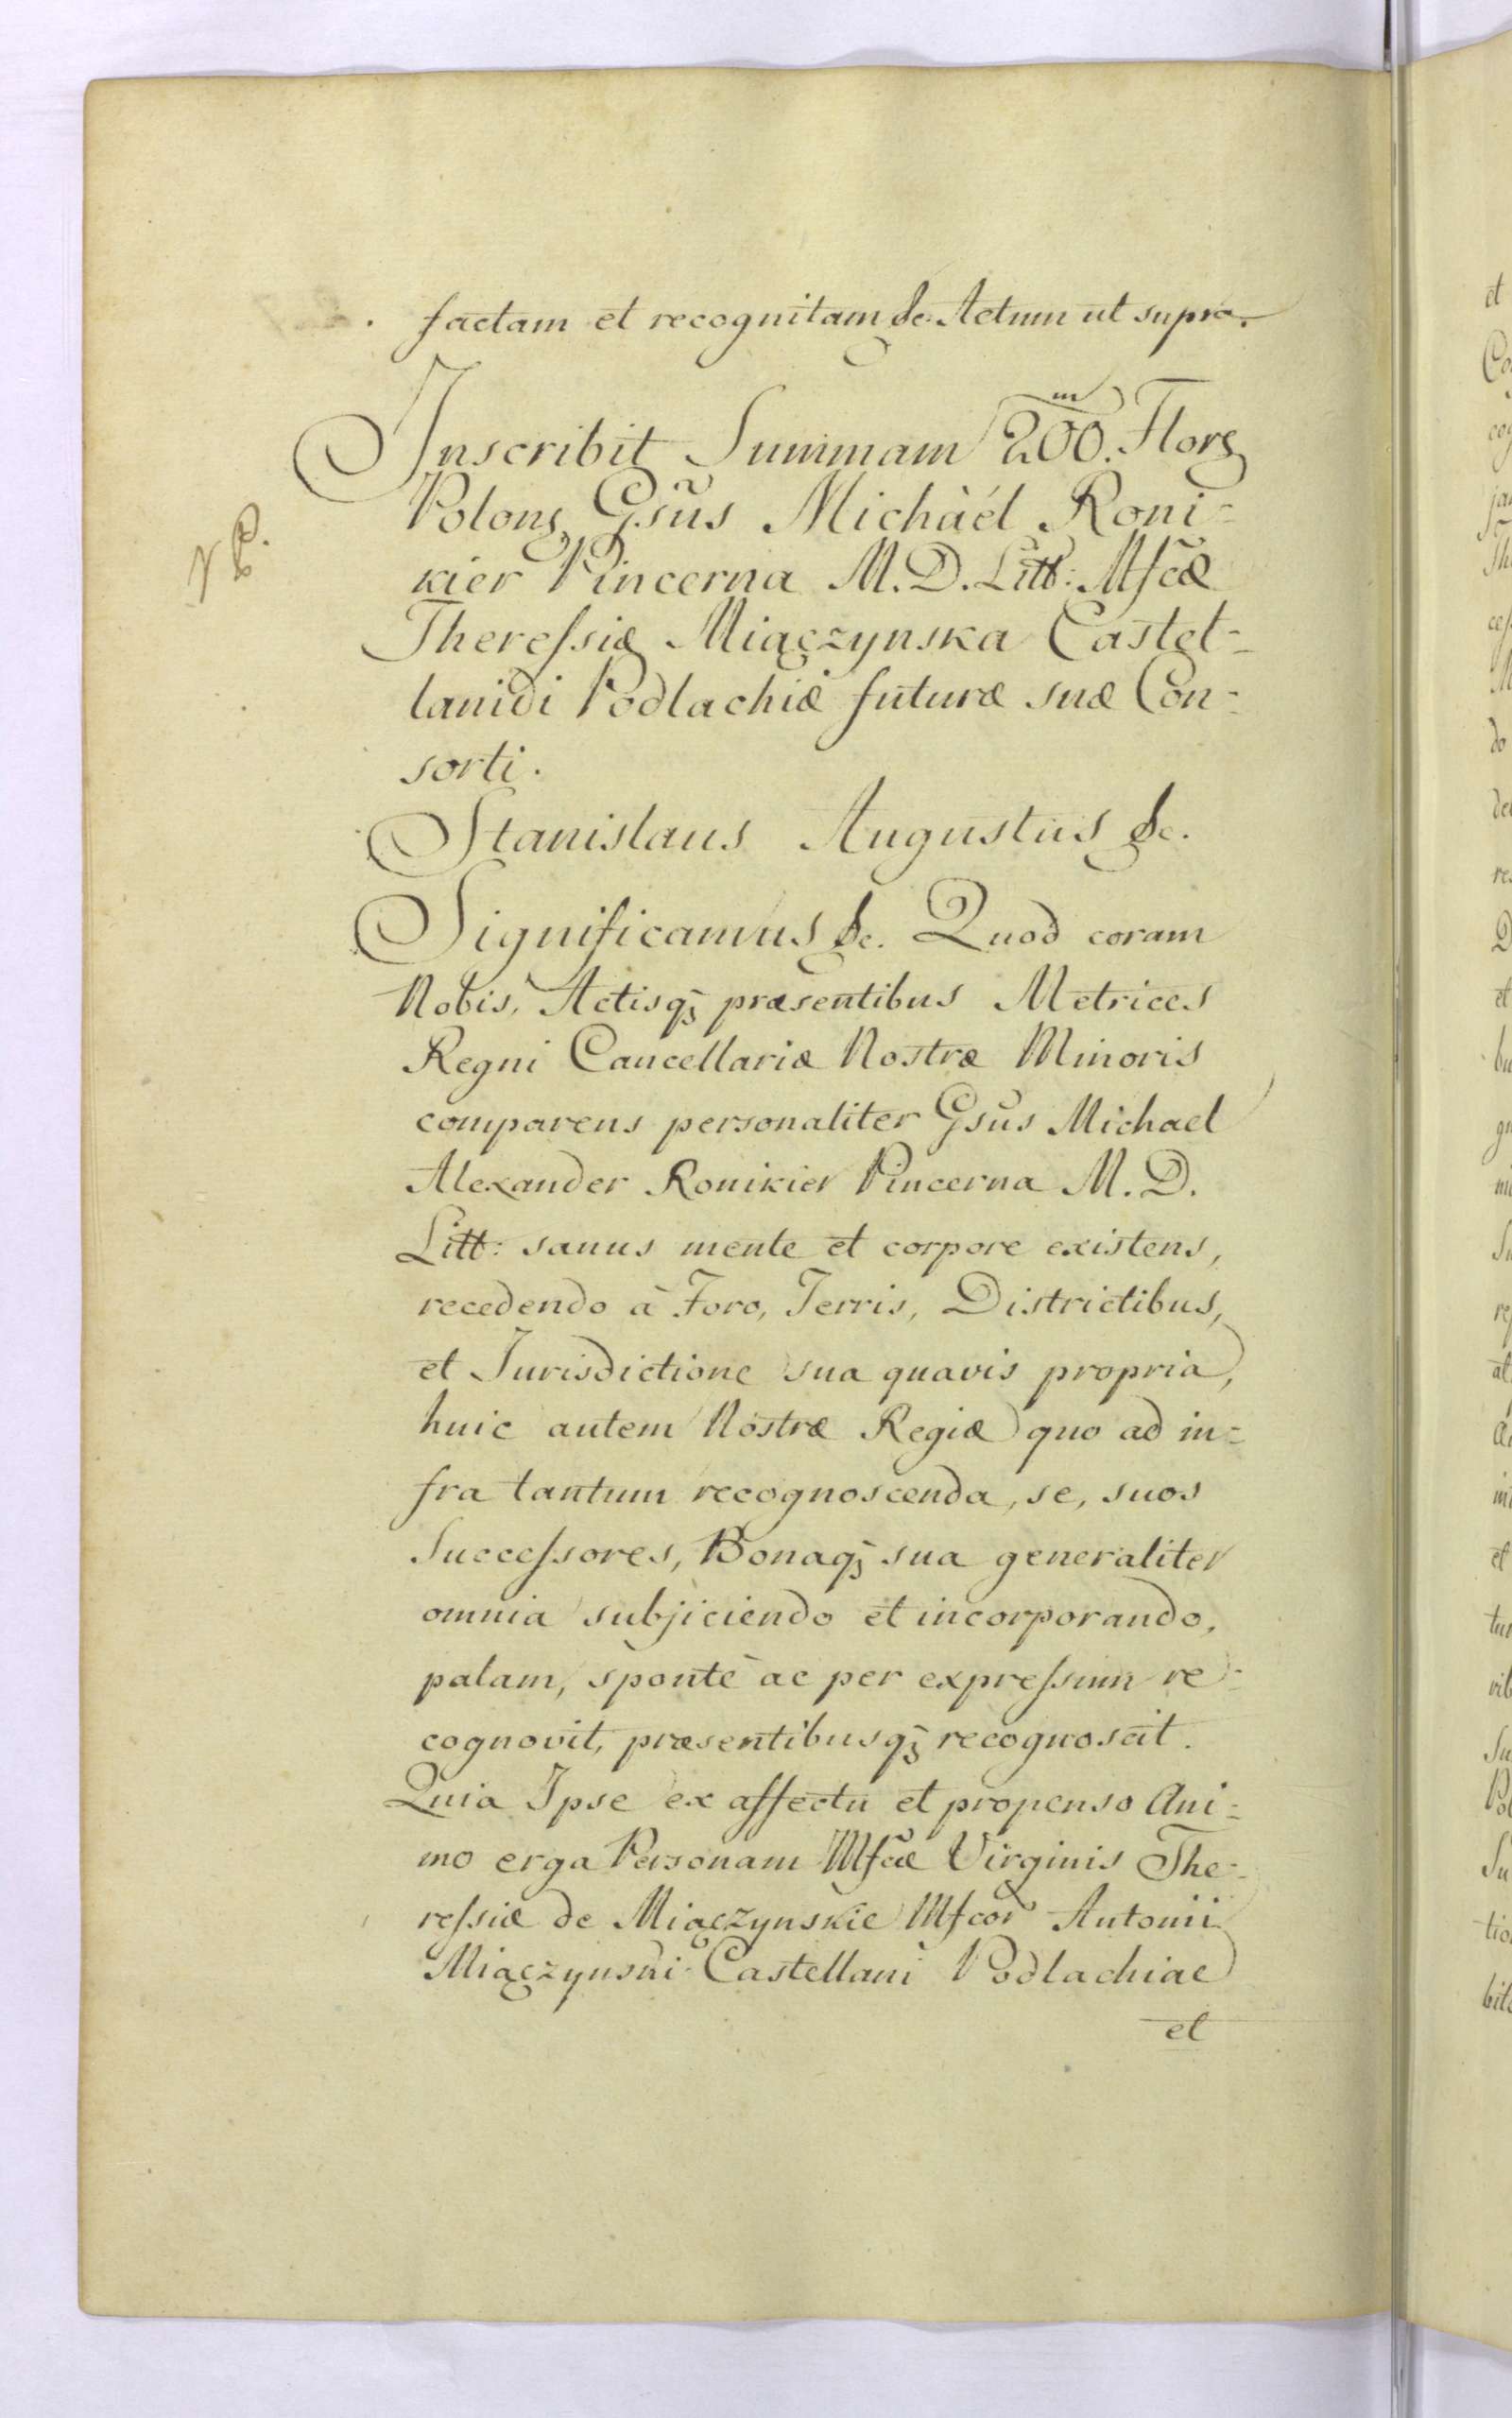 factam et recognitam &c. Actum ut supra.
Inscribit Summam 200.ᵐ Flors
Polons Gsũs Michàél Roni-
kier Pincerna M. D. Litt: Mfcæ
Therefsiæ Miączynska Castel-
lanidi Podlachiæ futuræ suæ Con-
sorti.
Stanislaus Augustus &c.
Significamus &c. Quod coram
Nobis, Actisq; præsentibus Metrices
Regni Cancellariæ Nostræ Minoris
comparens personaliter Gsũs Michael
Alexander Ronikier Pincerna M. D.
Litt: sanus mente et corpore existens,
recedendo à Foro, Terris, Districtibus,
et Jurisdictione sua quavis propria,
huic autem Nostræ Regiæ quo ad in-
fra tantum recognoscenda, se, suos
Succefsores, Bonaq; sua generaliter
omnia subjiciendo et incorporando,
palam, spontè ac per exprefsum re-
cognovit, præsentibusq; recognoscit.
Quia Ipse ex affectu et propenso Ani-
mo erga Personam Mfcæ Virginis The-
refsiæ de Miączynskie Mfcor Antonii
Miączynski Castellani Podlachiae
et